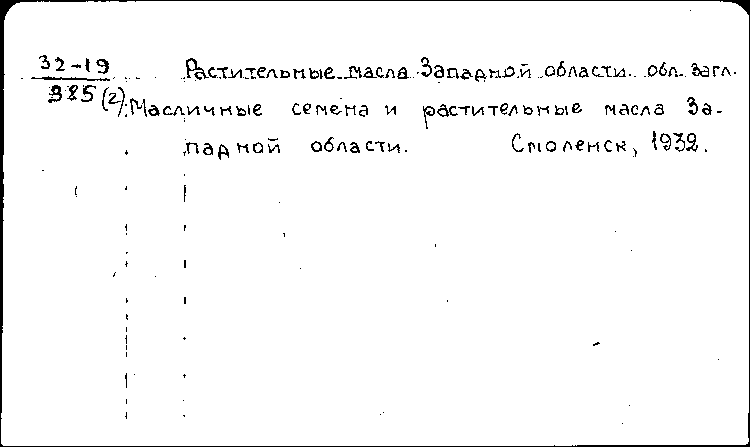 32-19 Растительные масла Западной области. обл. загл.
385 (2) Масличные семена и растительные масла За-
падной области. Смоленск, 1932.